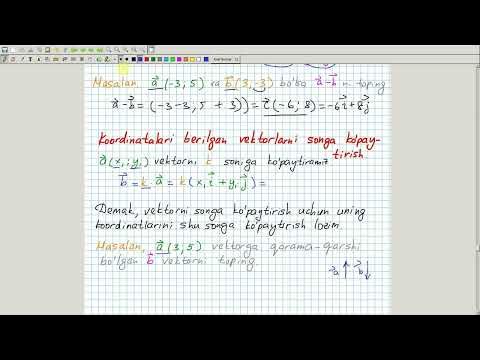 Masalan, a⃗ (-3; 5) va b⃗ (3; -3) bo'lsa a⃗-b⃗ ni toping
a⃗-b⃗ = (-3-3; 5+3)) = c⃗(-6; 8) = -6i⃗+8j⃗
Koordinatalari berilgan vektorlarni songa ko'pay-
tirish
a⃗ (x₁; y₁) vektorni k soniga ko'paytiramiz
b⃗ = k · a⃗ = k (x₁ i⃗ + y₁ j⃗) =
Demak, vektorni songa ko'paytirish uchun uning
koordinatlarini shu songa ko'paytirish lozim.
Masalan, a⃗ (3; 5) vektorga qarama-qarshi
bo'lgan b⃗ vektorni toping
a⃗ ↑ b⃗ ↓